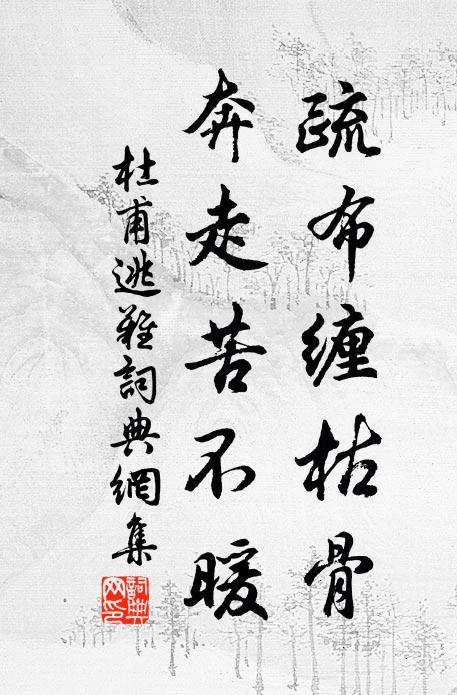 疏布缠枯骨
奔走苦不暖
杜甫逃難詞典網集
詞典网印